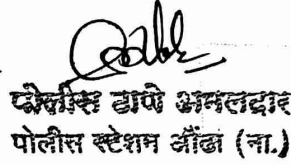 पोलीस ठाणे अमलदार
पोलीस स्टेशन औंढा (ना.)